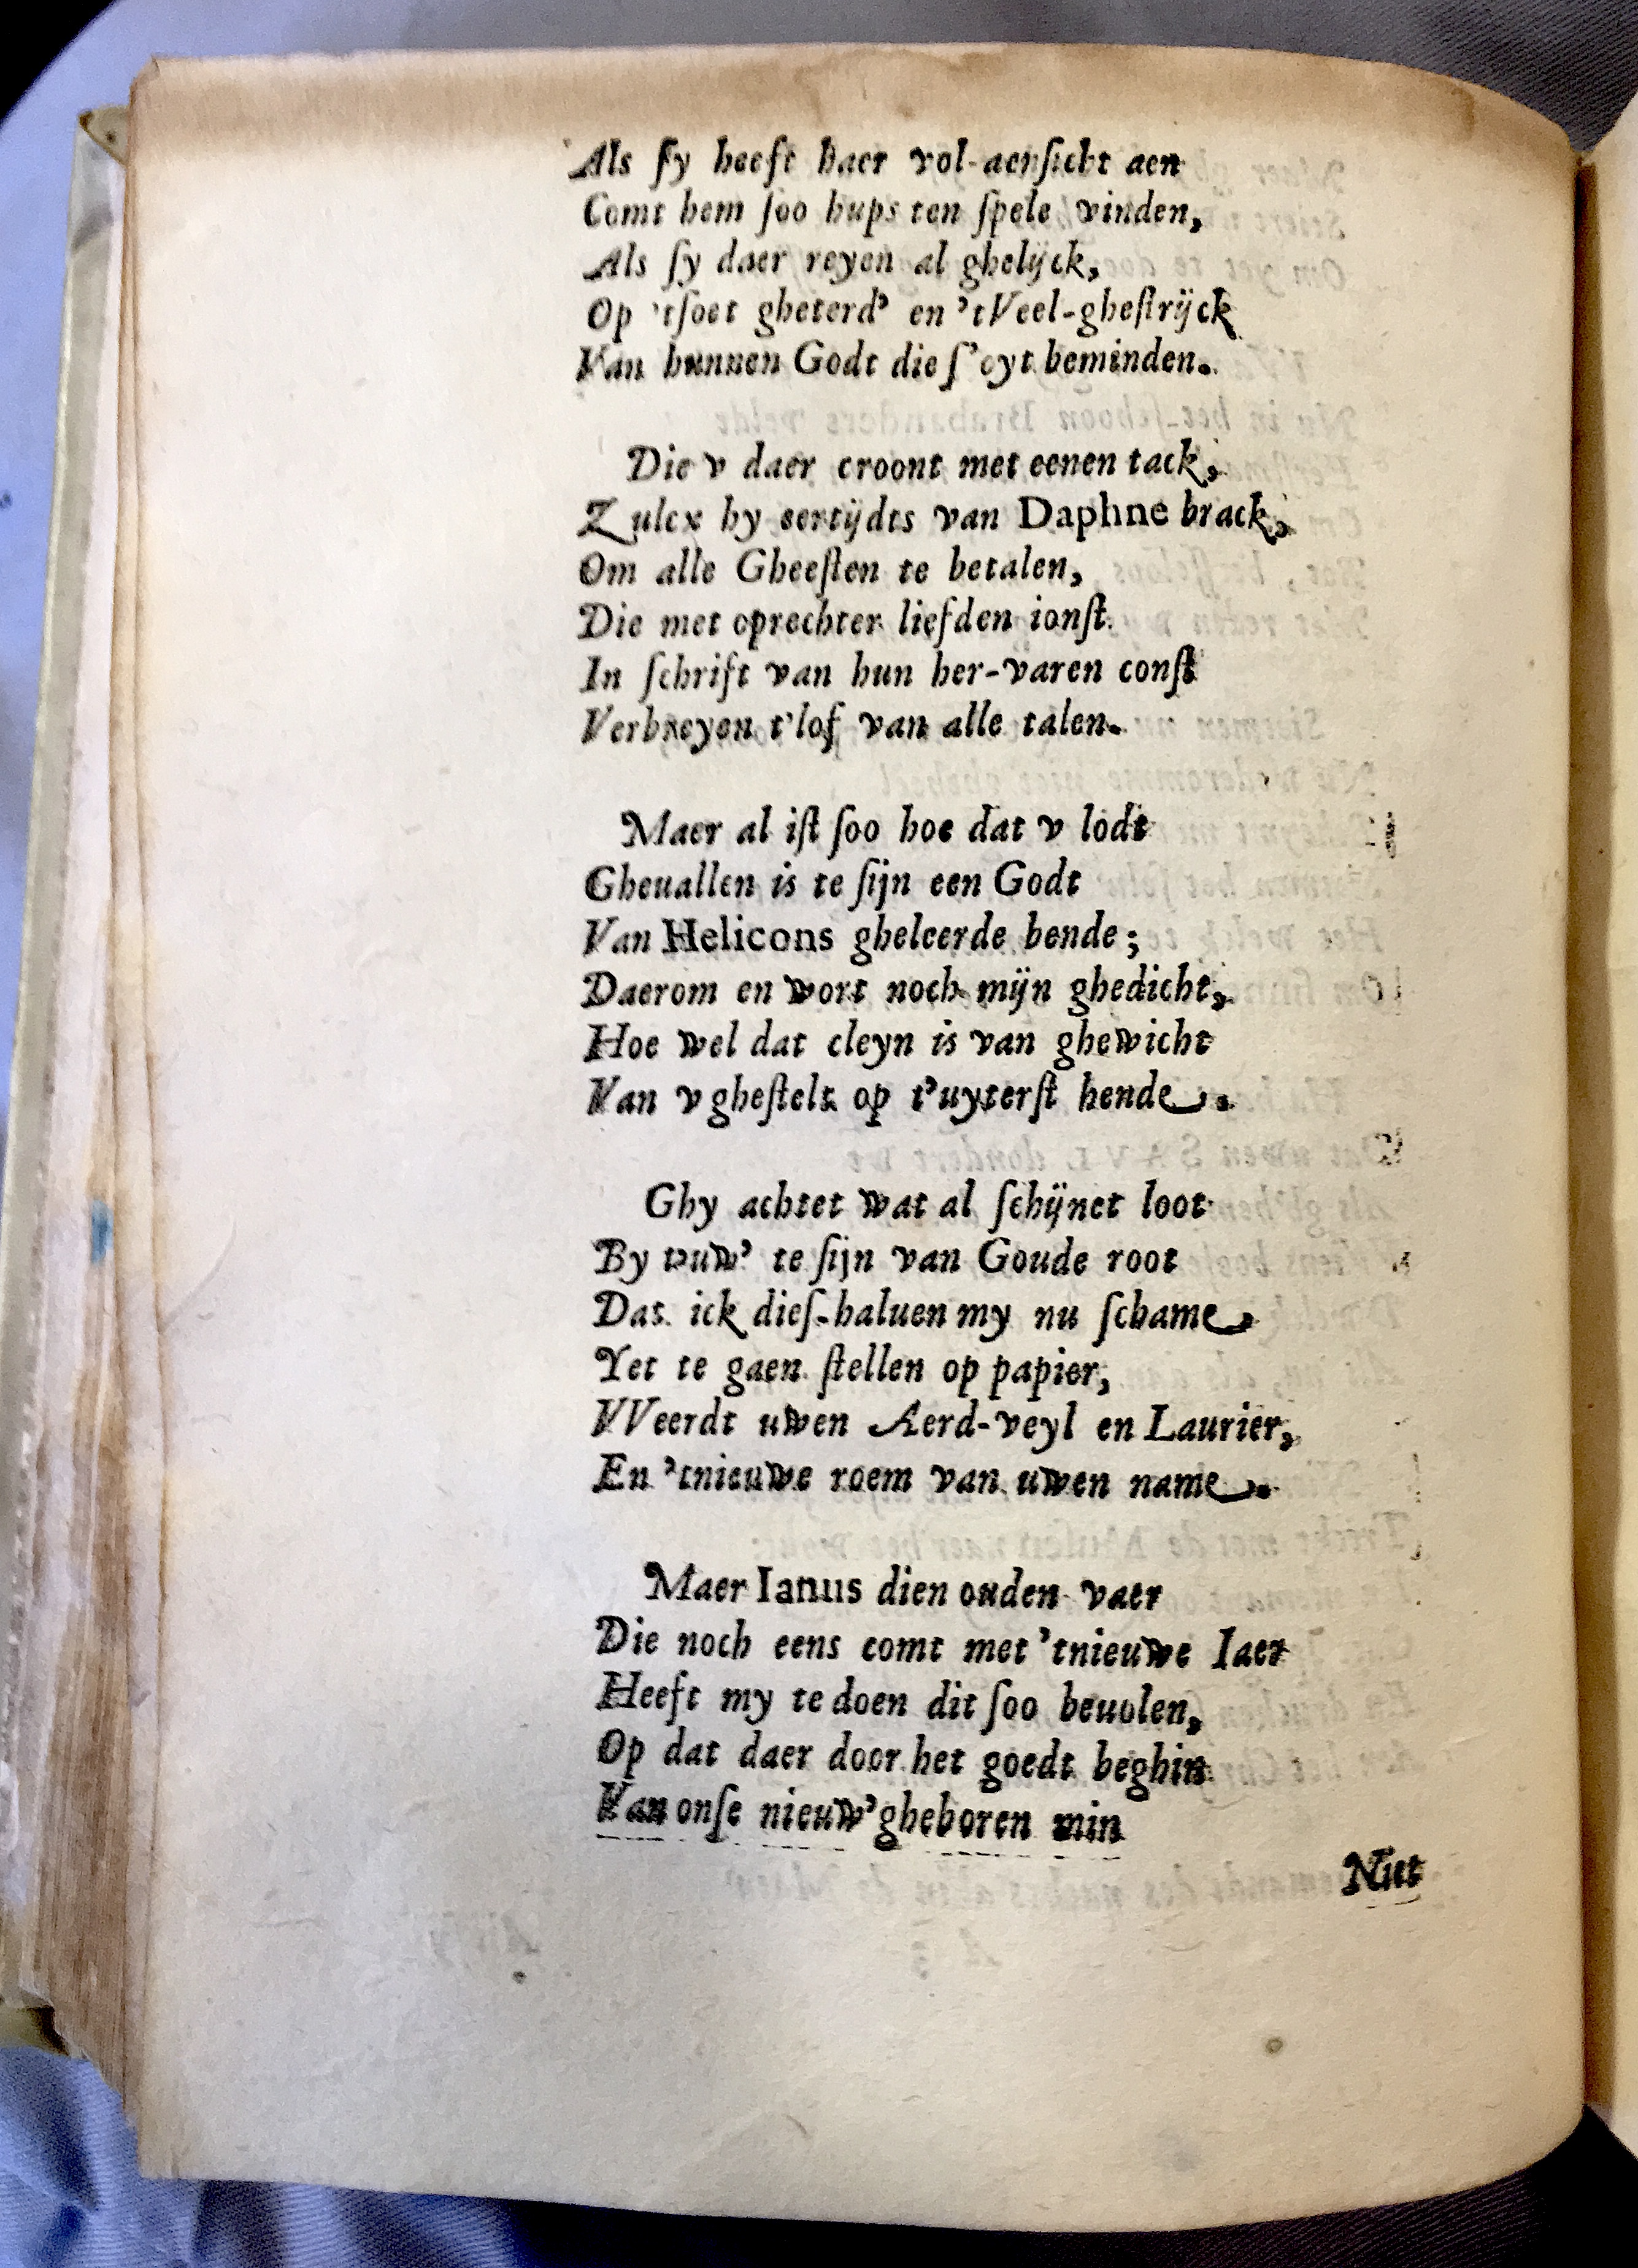 Als ſy heeft haer vol-aenſicht aen
Comt hem ſoo hups ten ſpele vinden,
Als ſy daer reyen al ghelijck,
Op 'tſoet gheterd' en 'tVeel-gheſtrijck
Van hunnen Godt die ſ'oyt beminden.
Die v daer croont met eenen tack,
Zulcx hy eertijdts van Daphne brack,
Om alle Gheeſten te betalen,
Die met oprechter liefden ionſt
In ſchrift van hun her-varen conſt
Verbreyen t'lof van alle talen.
Maer al iſt ſoo hoe dat v lodt
Gheuallen is te ſijn een Godt
Van Helicons gheleerde bende;
Daerom en wort noch mijn ghedicht,
Hoe wel dat cleyn is van ghewicht
Van v gheſtelt op t'uyterſt hende.
Ghy achtet wat al ſchijnet loot
By vuw' te ſijn van Goude root
Dat ick dieſ-haluen my nu ſchame
Yet te gaen ſtellen op papier,
VVeerdt uwen Aerd-veyl en Laurier,
En 'tnieuwe roem van uwen name.
Maer Ianus dien ouden vaer
Die noch eens comt met 'tnieuwe Iaer
Heeft my te doen dit ſoo beuolen,
Op dat daer door het goedt beghin
Van onſe nieuw'gheboren min
Niet